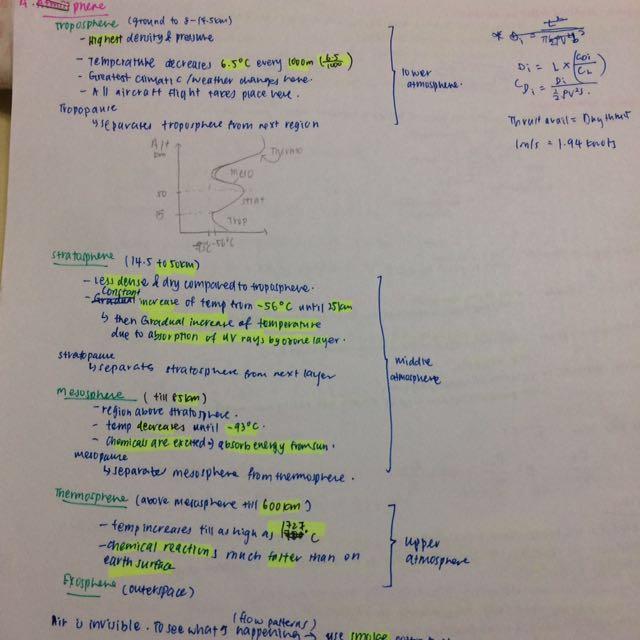 troposphere (ground to 8-14.5km)
- Highest density & pressure
- temperature decreases 6.5°C every 1000m (6.5/1000)
- Greatest climatic/weather changes here.
- All aircraft flight takes place here.
Tropopause
↳ separates troposphere from next region
lower
atmosphere.
Di = L × (CDi/CL)
CDi = Di/½ρV²S.
Thrust avail = Dry thrust
1m/s = 1.94 knots
Alt
km
Thermo
Meso
50
strat
25
Trop
-93°C -56°C
stratosphere (14.5 to 50km)
- Less dense & dry compared to troposphere.
constant
- Gradual increase of temp from -56°C until 25km
↳ then Gradual increase of temperature
due to absorption of UV rays by ozone layer.
stratopause
↳ separates stratosphere from next layer
middle
atmosphere
Mesosphere (till 85km)
- region above stratosphere.
- temp decreases until -93°C.
- chemicals are excited → absorb energy from sun.
mesopause
↳ separates mesosphere from thermosphere.
Thermosphere (above mesosphere till 600km)
- temp increases till as high as 1727°C
- chemical reactions much faster than on
earth surface
upper
atmosphere
Exosphere (outerspace)
(flow patterns)
Air is invisible. To see what's happening → use smoke